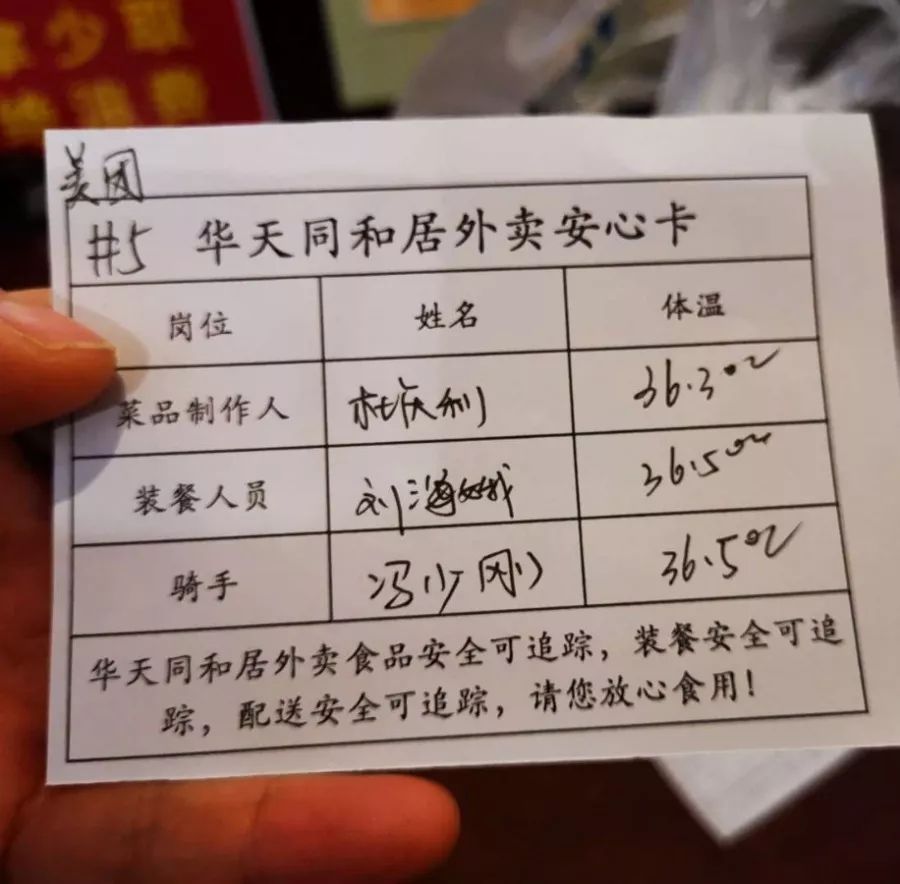 美团
#5 华天同和居外卖安心卡
岗位 姓名 体温
菜品制作人 杜庆利 36.3℃
装餐人员 刘海娥 36.5℃
骑手 冯少刚 36.5℃
华天同和居外卖食品安全可追踪，装餐安全可追
踪，配送安全可追踪，请您放心食用！